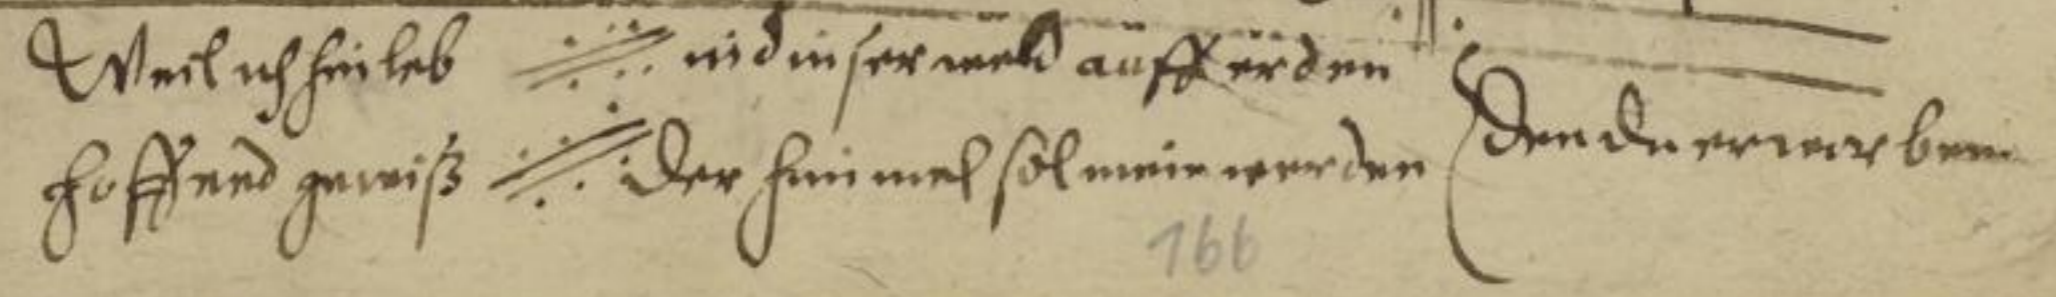 Weil ich hie leb ·//· und in ser welt auff erden
hoffend gewiß ·//· der himmel sol mein werden
den du erworben
166